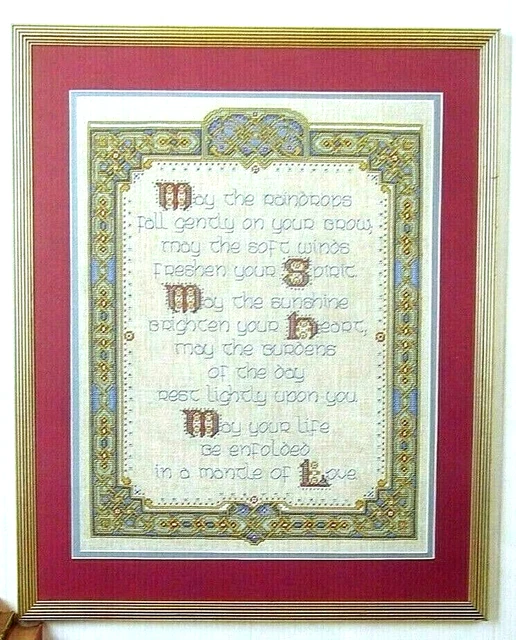 May the raindrops
fall gently on your brow,
may the soft winds
freshen your Spirit.
May the sunshine
brighten your heart,
may the burdens
of the day
rest lightly upon you
May your life
be enfolded
in a mantle of Love